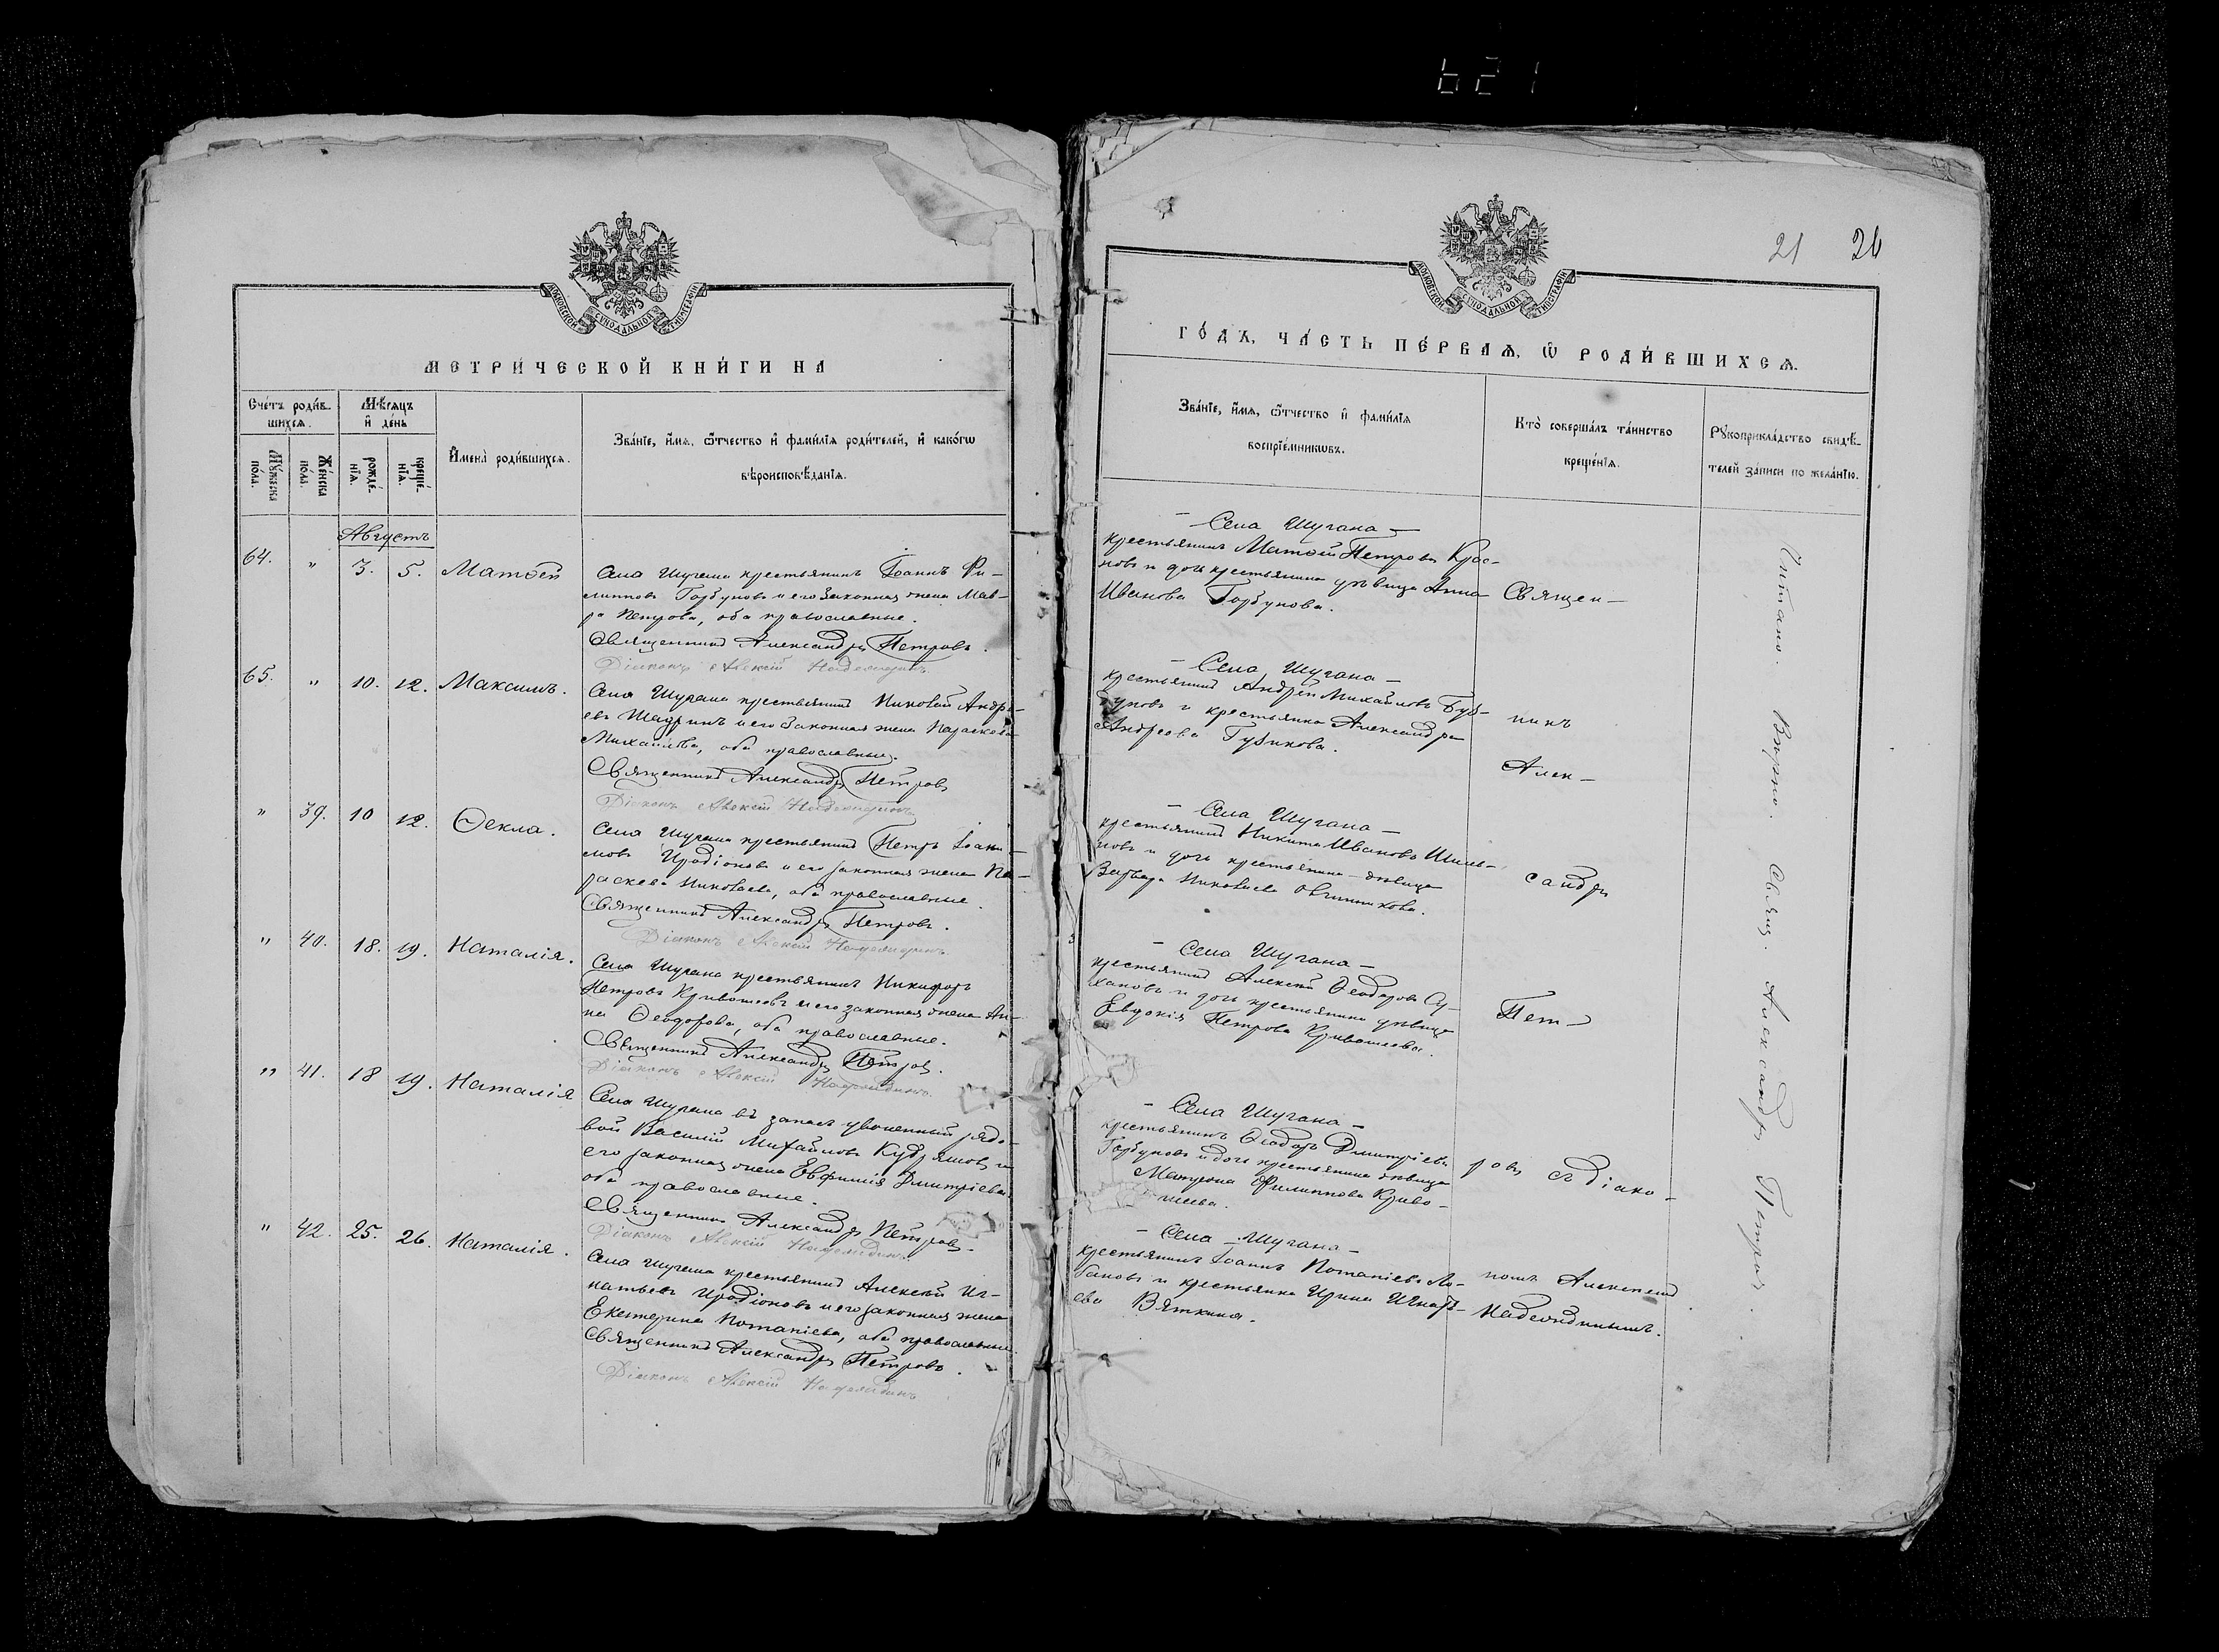 621
МОСКОВСКОЙ СѴНОДАЛЬНОЙ ТИПОГРАФІИ
МЕТРИ́ЧЕСКОЙ КНИ́ГИ НА
Сче́тъ роди́в-
шихсѧ.
Мѣ́сѧцъ
и҆ де́нь
Му́жеска
по́ла.
Же́нска
по́ла.
рожде́-
нїѧ.
креще́-
нїѧ.
И҆мена̀ роди́вшихсѧ.
Зва́нїе, и҆́мѧ, ѿтчество и҆ фами́лїѧ роди́телей, и҆ како́гѡ
вѣроисповѣ́данїѧ.
Августъ
64. " 3. 5. Матѳей
Села Шугана крестьянинъ Іоаннъ Фи-
липповъ Горбуновъ и его законная жена Мав-
ра Петрова, оба православные.
Священникъ Александръ Петровъ.
Діаконъ Алексій
65. " 10. 12. Максимъ.
Села Шугана крестьянинъ Николай Андре-
евъ Шадринъ и его законная жена Параскева
Михайлова, оба православные.
Священникъ Александръ Петровъ
Діаконъ Алексій
" 39. 10 12. Ѳекла.
Села Шугана крестьянинъ Петръ Іоаки-
мовъ Иродіоновъ и его законная жена Па-
раскева Николаева, оба православные.
Священникъ Александръ Петровъ.
Діаконъ Алексій
" 40. 18. 19. Наталія.
Села Шугана крестьянинъ Никифоръ
Петровъ Кривошеевъ и его законная жена Ан-
на Ѳеодорова, оба православные.
Священникъ Александръ Петровъ.
Діаконъ Алексій
" 41. 18 19. Наталія
Села Шугана въ запасъ уволенный рядо-
вой Василій Михайловъ Кудряшовъ и
его законная жена Евфимія Дмитріева
оба православные.
Священникъ Александръ Петровъ.
Діаконъ Алексій
" 42. 25. 26. Наталія.
Села Шугана крестьянинъ Алексѣй Иг-
натьевъ Иродіоновъ и его законная жена
Екатерина Потапіева, оба православные.
Священникъ Александръ Петровъ.
Діаконъ Алексій
21 26
МОСКОВСКОЙ СѴНОДАЛЬНОЙ ТИПОГРАФІИ
ГО́ДЪ, ЧА́СТЬ ПЕ́РВАѦ, Ѽ РОДИ́ВШИХСѦ.
Зва́нїе, и҆́мѧ, ѿтчество и҆ фами́лїѧ
воспрїе́мникѡвъ.
Кто̀ соверша́лъ та́инство
креще́нїѧ.
Рꙋкоприкла́дство свидѣ́-
телей за́писи по жела́нїю.
– Села Шугана –
крестьянинъ Матѳей Петровъ Крас-
новъ и дочь крестьянина дѣвица Анна
Иванова Горбунова.
– Села Шугана –
крестьянинъ Андрей Михайловъ
и крестьянка Александра
Андреева
– Села Шугана –
крестьянинъ Никита Ивановъ
новъ и дочь крестьянина – дѣвица
Варвара Николаева Овчинникова.
– Села Шугана –
крестьянинъ Алексѣй Ѳеодоровъ Су-
хановъ и дочь крестьянина дѣвица
Евдокія Петрова Кривошеева.
– Села Шугана –
крестьянинъ Ѳеодоръ Дмитріевъ
Горбуновъ и дочь крестьянина дѣвица
Матрона Филиппова Криво-
шеева.
– Села Шугана –
крестьянинъ Іоаннъ Потапіевъ Ло-
бановъ и крестьянка Ирина Игнать-
ева Вяткина.
Священ-
никъ
Алек-
сандръ
Пет-
ровъ съ діако-
номъ Алексѣемъ
Надеждинымъ.
Читано. Вѣрно. Свящ. Александръ Петровъ.